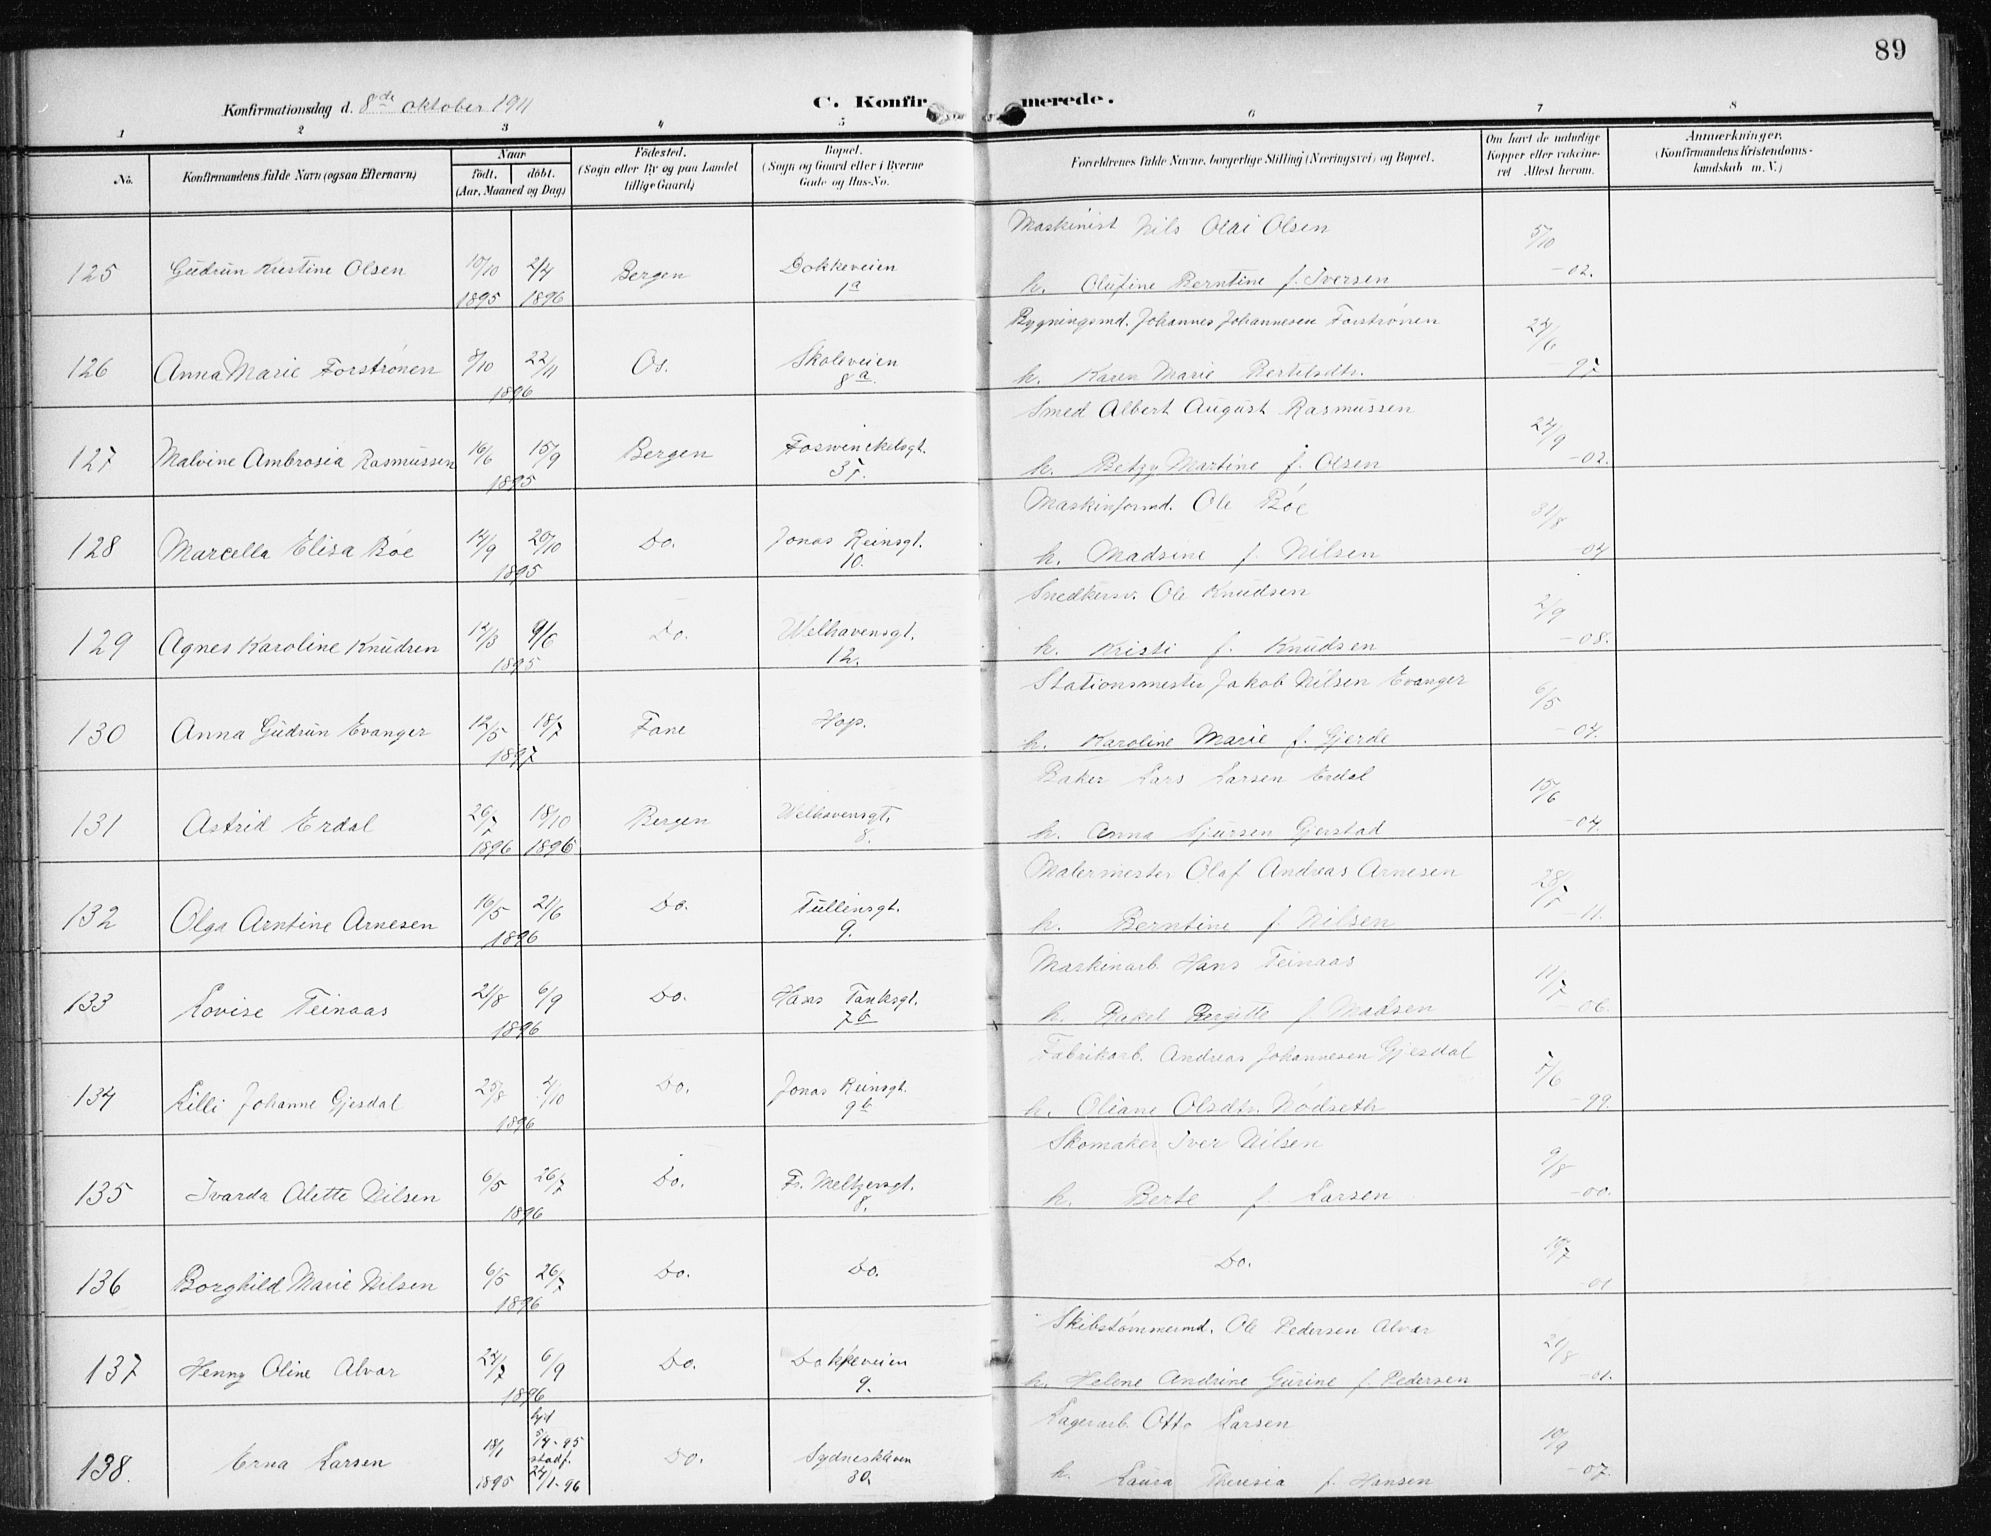 89
Konfirmationsdag d. 8de oktober 1911
C. Konfirmerede.
1 2 3 4 5 6 7 8
No.
Konfirmandens fulde Navn (ogsaa Efternavn)
Naar
født. døbt.
(Aar, Maaned og Dag)
Fødested.
(Sogn eller By og paa Landet
tillige Gaard)
Bopæl.
(Sogn og Gaard eller i Byerne
Gade og Hus-No.
Forældrenes fulde Navne, borgerlige Stilling (Næringsvei) og Bopæl.
Om havt de naturlige
Kopper eller vakcine-
ret Attest herom.
Anmærkninger.
(Konfirmandens Kristendoms-
kundskab m. V.)
125 Gudrun Kristine Olsen 10/10 1895 2/4 1896 Bergen Dokkeveien 1a
Maskinist Nils Olai Olsen 5/10
h. Olufine Berntine f. Iversen -02.
126 Anna Marie Forstrønen 8/10 22/11 1896 Os. Skoleveien 8a.
Bygningsmd. Johannes Johannesen Forstrønen 24/6
h. Karen Marie Bertelsdtr. -97
127 Malvine Ambrosia Rasmussen 16/6 15/9 1895 Bergen Foswinckelsgt. 37.
Smed Albert August Rasmussen 24/9
h. Betzy Martine f. Olsen -02.
128 Marcella Elisa Bøe 14/9 20/10 1895 Do. Jonas Reinsgt. 10.
Maskinformd. Ole Bøe 31/8
h. Madsine f. Nilsen -04
129 Agnes Karoline Knudsen 14/3 9/6 1895 Do. Welhavensgt. 12.
Snedkersv. Ole Knudsen 2/9
h. Kristi f. Knudsen -08.
130 Anna Gudrun Evanger 12/5 18/7 1897 Fane Hop.
Stationsmester Jakob Nilsen Evanger 6/5
h. Karoline Marie f. Gjerde -04.
131 Astrid Erdal 26/7 1896 18/10 1896 Bergen Welhavensgt. 8.
Baker Lars Larsen Erdal 15/6
h. Anna Sjursen Gjerstad -04.
132 Olga Arntine Arnesen 16/5 21/6 1896 Do. Tullinsgt. 9.
Malermester Olaf Andreas Arnesen
h. Berntine f. Nilsen -11.
133 Lovise Teinaas 21/8 6/9 1896 Do. Hans Tanksgt. 7b
Maskinarb. Hans Teinaas 11/7
h. Rakel Bergitte f. Madsen -06.
134 Lilli Johanne Gjesdal 25/8 4/10 1896 Do. Jonas Reinsgt. 9b
Fabrikarb. Andreas Johannesen Gjesdal 7/6
h. Oliane Olsdtr. Nødseth -99.
135 Ivarda Olette Nilsen 6/5 26/7 1896 Do. Fr. Meltzersgt. 8.
Skomaker Iver Nilsen 9/8
h. Berte f. Larsen -00.
136 Borghild Marie Nilsen 6/5 26/7 1896 Do. Do.
Do. -01
137 Henny Oline Alvær 24/7 6/9 1896 Do. Dokkeveien 9.
Skibstømmermd. Ole Pedersen Alvær 21/8
h. Helene Andrine Gurine f. Pedersen -01.
138. Erna Larsen 18/1 1895 hjd 5/4-95 stadf. 24/1-96 Do. Sydneskleven 30.
Lagerarb. Otto Larsen 10/9
h. Laura Theresia f. Hansen -07.